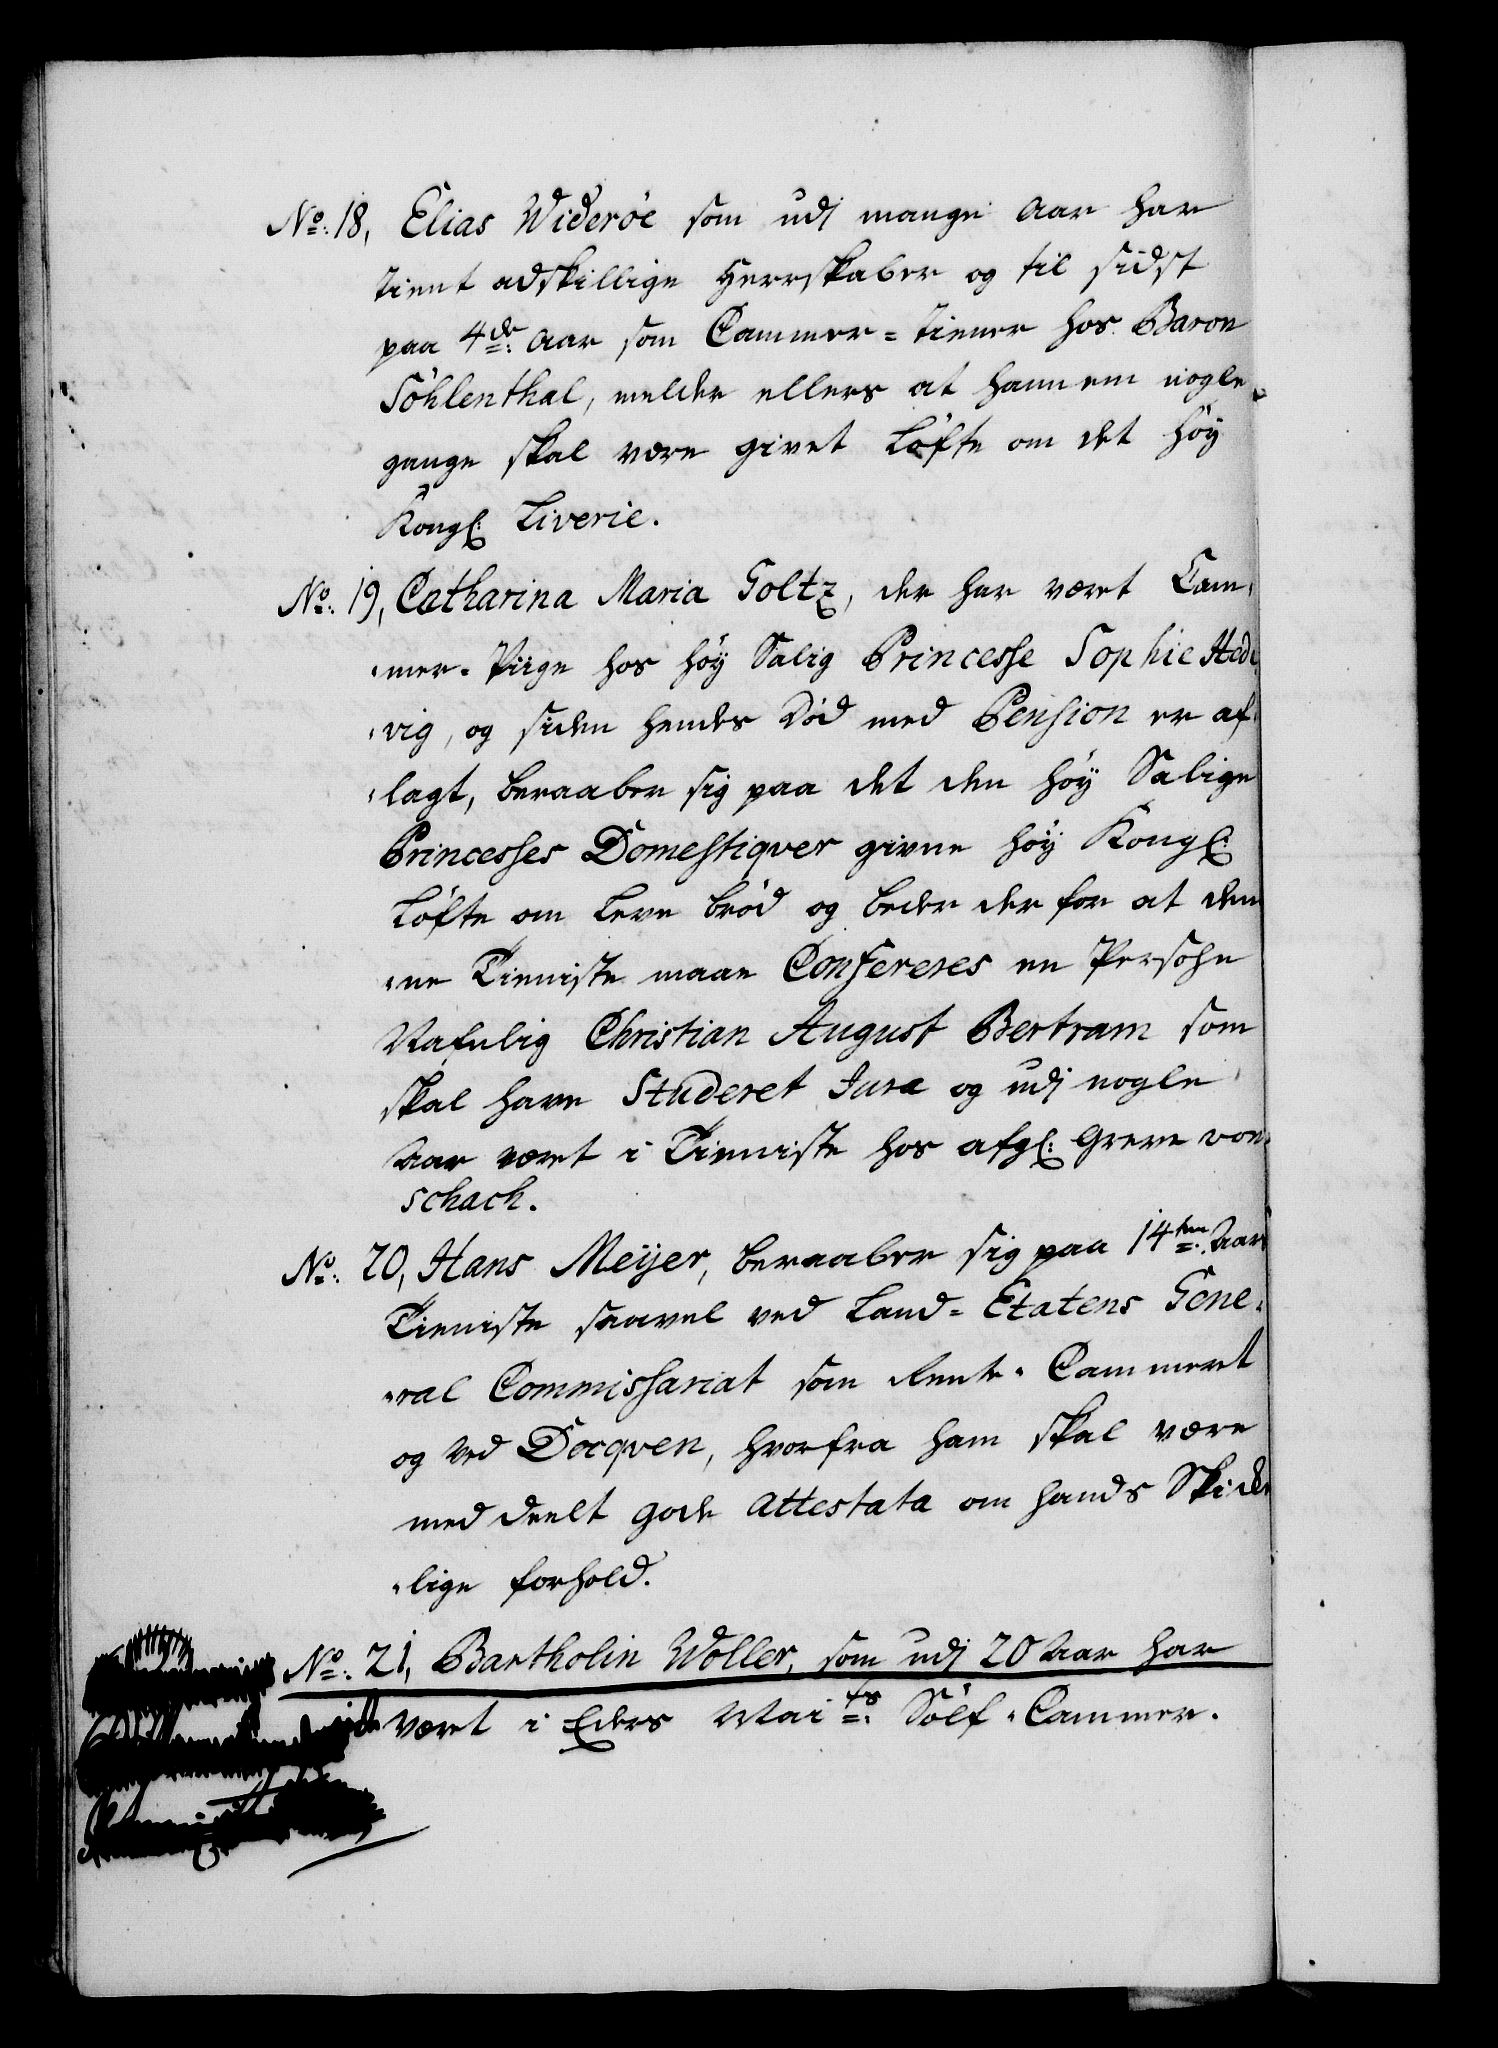 No: 18, Elias Wideröe som udj mange Aar har
tient adskillige Herrskaber og til sidst
paa 4de: Aar som Cammer = tiener hos Baron
Söhlenthal, melder ellers at hannem nogle
gange skal være givet Löfte om det höy
Kongl: Liverie.
No: 19, Catharina Maria Goltz, der har været Cam-
-mer-Piige hos höy Salig Princesse Sophie Hed-
-vig, og siden hendes Död med Pension er af-
-lagt, beraaber sig paa det den höy Salige
Princesses Domestiqver givne höy Kongl:
Löfte om Leve bröd og beder der for at den
-ne Tieniste maae Confereres en Persohn
Nafnlig Christian August Bertram som
skal have Studeret Jura og udj nogle
Aar været i Tieniste hos afgl: Greve von
Schach.
No: 20, Hans Meÿer, beraaber sig paa 14ten: Aars
Tieniste saavel ved Land = Etatens Gene-
-ral Commissariat som Rente-Cammeret
og ved Docqven, hvorfra ham skal være
meddeelt gode Attestata om hands Skicke
-lige forhold.
No: 21, Bartholin Wöller, som udj 20 Aar har
været i Eders Maits: Sölf-Cammer.